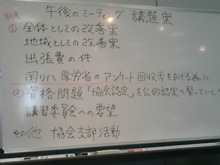 午後のミーティング 議題案
① 全体としての改善案
地域としての改善案
出張費の件
困りへ 厚労省のアンケート回収率をあげる為に
② 資格問題「協会認定」を公的認定へ繋いでいく
講習委員会への要望
その他 協会支部活動